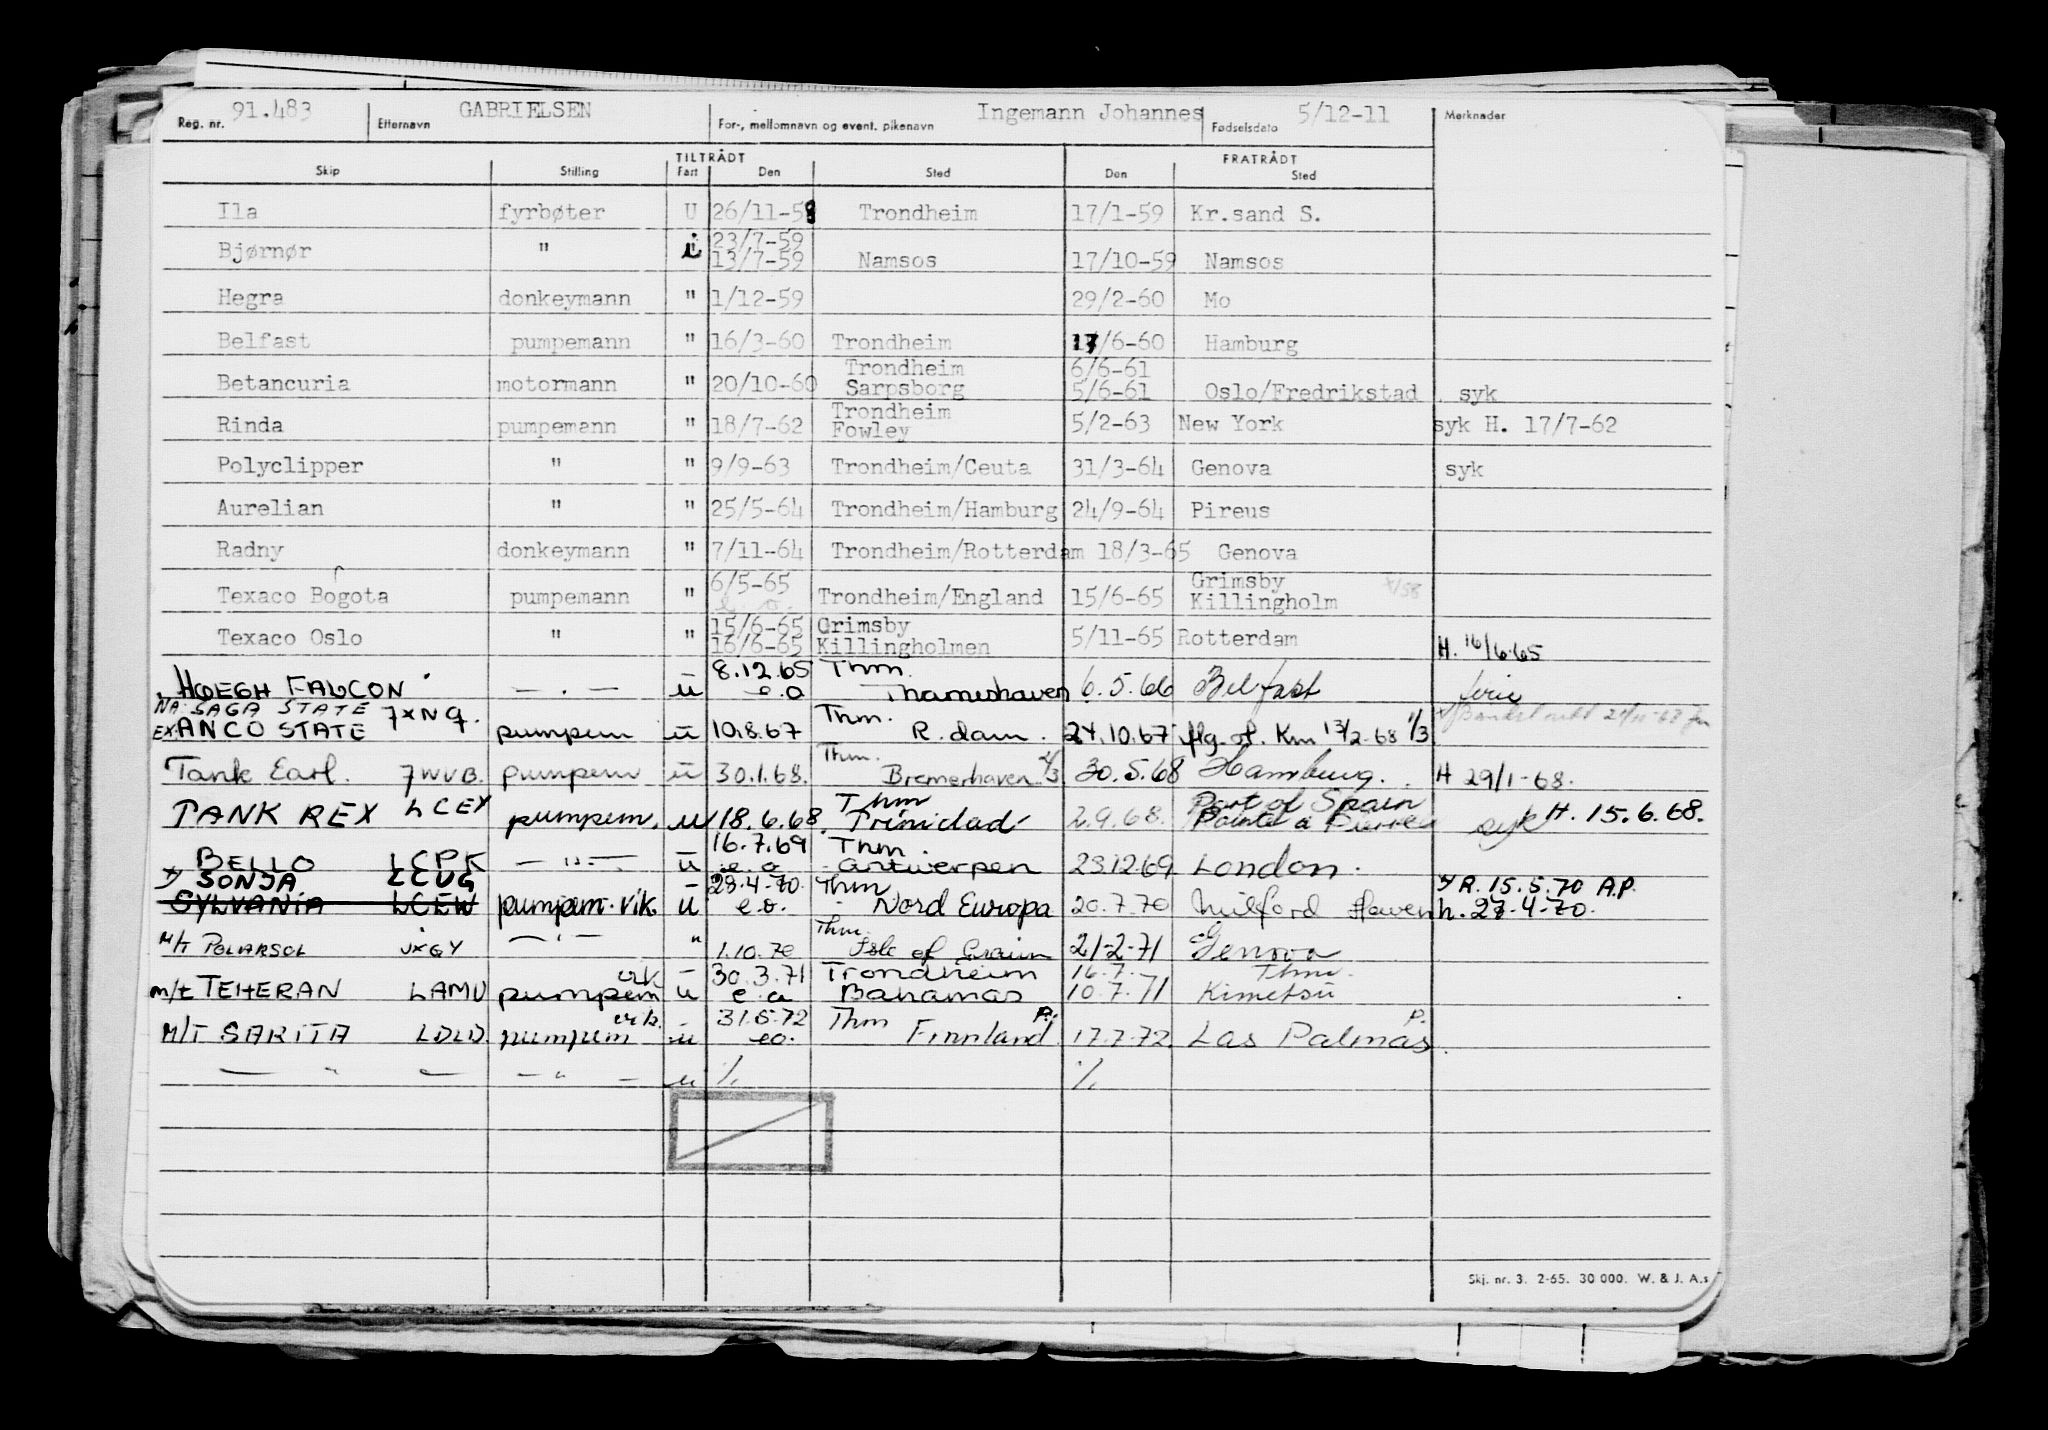 Reg. nr. 91.483 Etternavn GABRIELSEN For-, mellomnavn og event. pikenavn Ingemann Johannes Fødselsdato 5/12-11 Merknader
TILTRÅDT FRATRÅDT
Skip Stilling Fart Den Sted Den Sted
Ila fyrbøter U 26/11-58 Trondheim 17/1-59 Kr.sand S.
23/7-59
Bjørnør " i 13/7-59 Namsos 17/10-59 Namsos
Hegra donkeymann " 1/12-59 29/2-60 Mo
Belfast pumpemann " 16/3-60 Trondheim 17/6-60 Hamburg
Trondheim 6/6-61
Betancuria motormann " 20/10-60 Sarpsborg 5/6-61 Oslo/Fredrikstad syk
Trondheim
Rinda pumpemann " 18/7-62 Fowley 5/2-63 New York syk H. 17/7-62
Polyclipper " " 9/9-63 Trondheim/Ceuta 31/3-64 Genova syk
Aurelian " " 25/5-64 Trondheim/Hamburg 24/9-64 Pireus
Radny donkeymann " 7/11-64 Trondheim/Rotterdam 18/3-65 Genova
6/5-65 Grimsby
Texaco Bogota pumpemann " e.o. Trondheim/England 15/6-65 Killingholm
15/6-65 Grimsby
Texaco Oslo " " 16/6-65 Killingholmen 5/11-65 Rotterdam H. 16/6.65
8.12.65 Thm.
HØEGH FALCON — . — u e.o Thameshaven 6.5.66 Belfast ferie
NA: SAGA STATE 7XNQ. Thm.
EX. ANCO STATE pumpem u 10.8.67 R.dam. 24.10.67 flg. of. Km 13/2-68 1/3
Thm.
Tank Earl. 7WVB. pumpem u 30.1.68. Bremerhaven 30.5.68 Hamburg. H 29/1-68.
Thm Port of Spain
TANK REX LCEY pumpem. u 18.6.68. Trinidad 2.9.68. Pointe a Pierre syk H. 15.6.68.
16.7.69 Thm.
BELLO LCPK — " — u e.o Antwerpen 23.12.69 London.
SONJA LCUG 28.4-70. Thm R. 15.5.70 A.P.
SYLVANIA LCEW pumpm. vik. u e.o. Nord Europa 20.7.70 Milford Haven h. 27-4-70.
Thm.
M/T POLARSOL JXGY — " — " 1.10.70 Isle of Grain 21-2-71 Genova
vik 30.3.71 Trondheim 16.7. Thm.
m/t TEHERAN LAMU pumpem u e.o Bahamas 10.7.71 Kimetsu
vik. 31.5.72 Thm P. P.
M/T SARITA LDLD. pumpem u eo. Finnland 17.7.72 Las Palmas.
— " — — " — u % %
Skj. nr. 3. 2-65. 30 000. W. & J. A.s